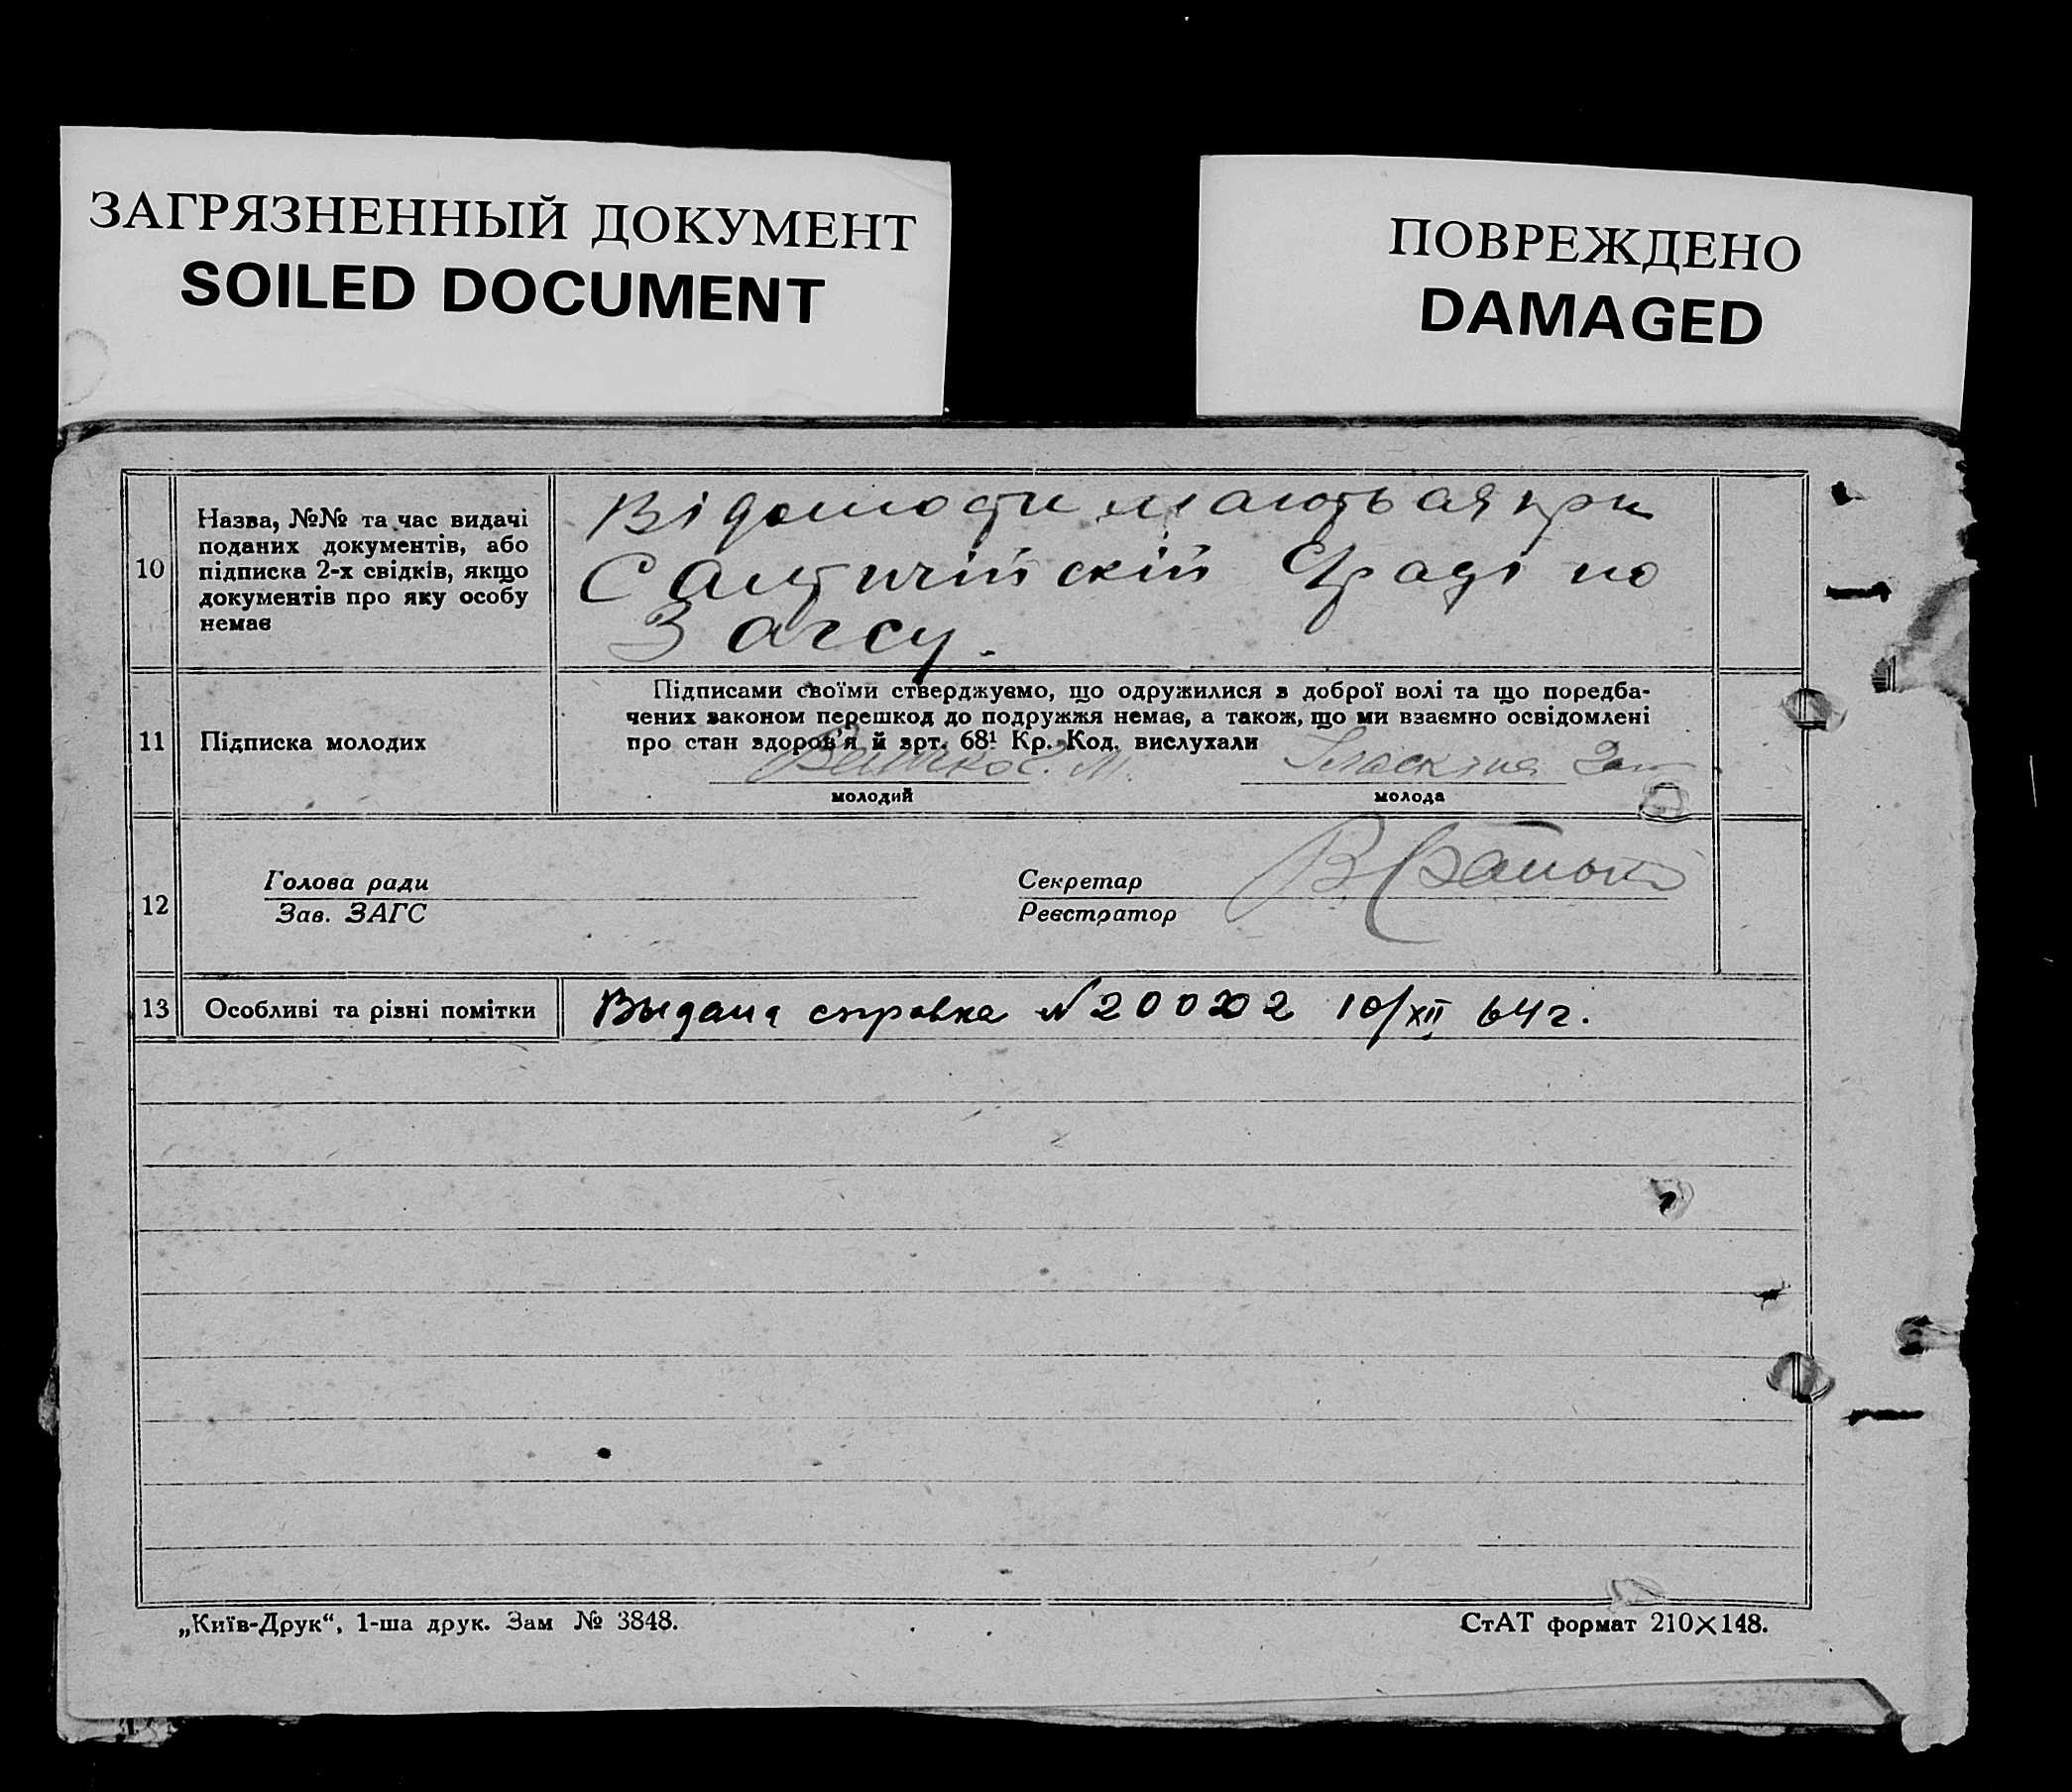 ЗАГРЯЗНЕННЫЙ ДОКУМЕНТ
SOILED DOCUMENT
ПОВРЕЖДЕНО
DAMAGED
10
Назва, №№ та час видачі
поданих документів, або
підписка 2-х свідків, якщо
документів про яку особу
немає
Відомости маються при
С/раді по
Загсу.
11
Підписка молодих
Підписами своїми стверджуємо, що одружилися з доброї волі та що поредба-
чених законом перешкод до подружжя немає, а також, що ми взаємно освідомлені
про стан здоров'я й арт. 68¹ Кр. Код. вислухали
молодий
молода
12
Голова ради
Зав. ЗАГС
Секретар
Реєстратор
13
Особливі та різні помітки
Выдана справка N 200202 10/XII 64 г.
„Київ-Друк“, 1-ша друк. Зам № 3848.
СтАТ формат 210×148.